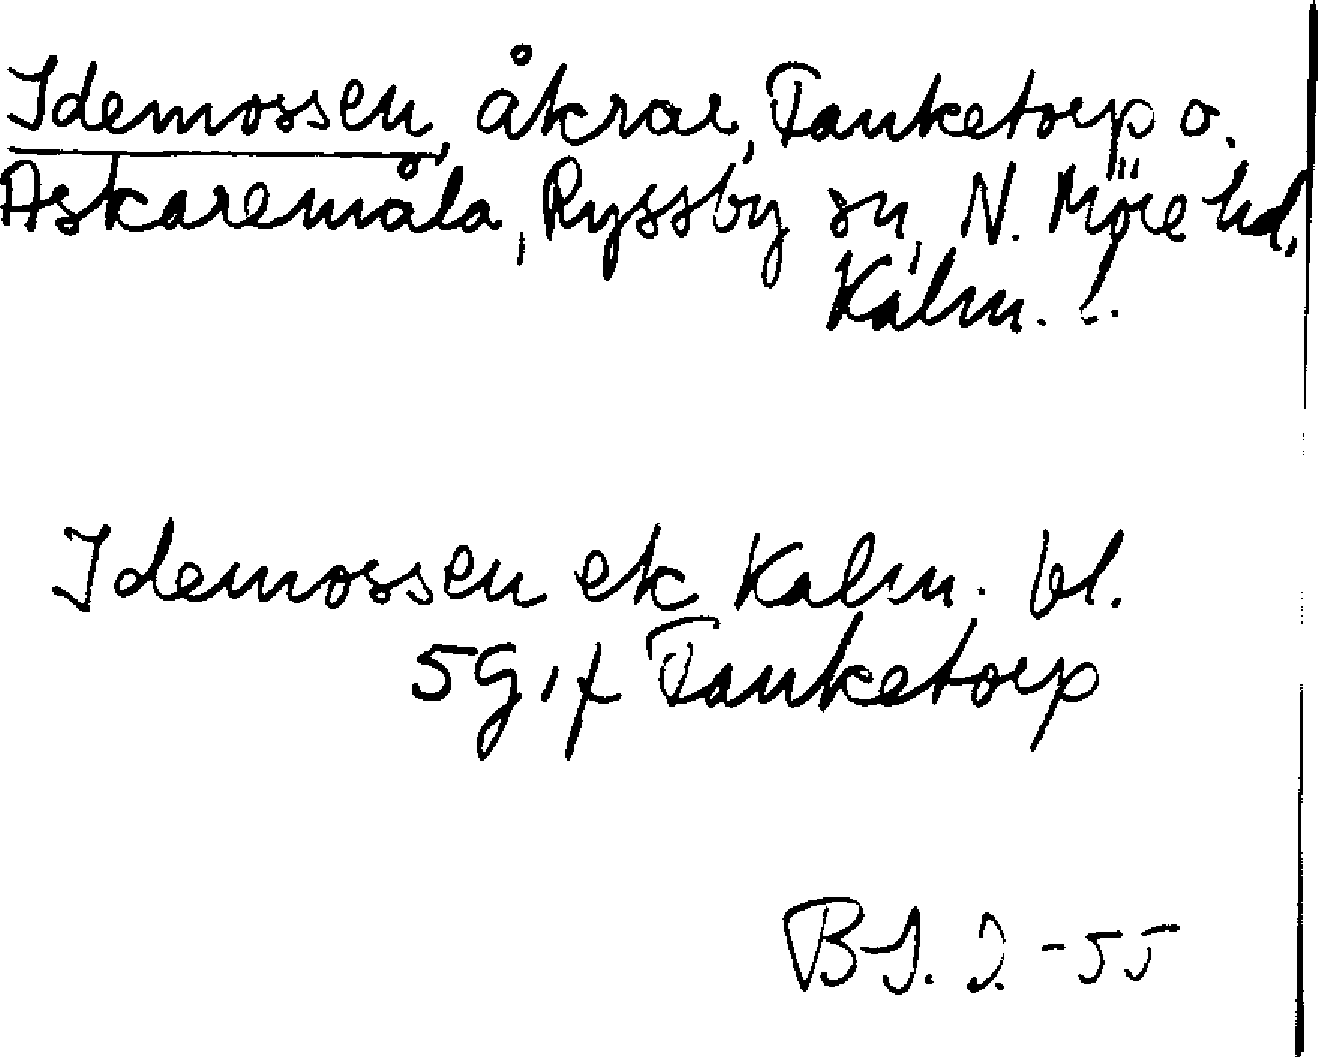 Idemossen, åkrar, Tanketorp o.
Askaremåla, Ryssby sn, N. Möre hd,
Kalm. l.
Idemossen ek Kalm. bl.
5G, f Tanketorp
BJ. I. -55